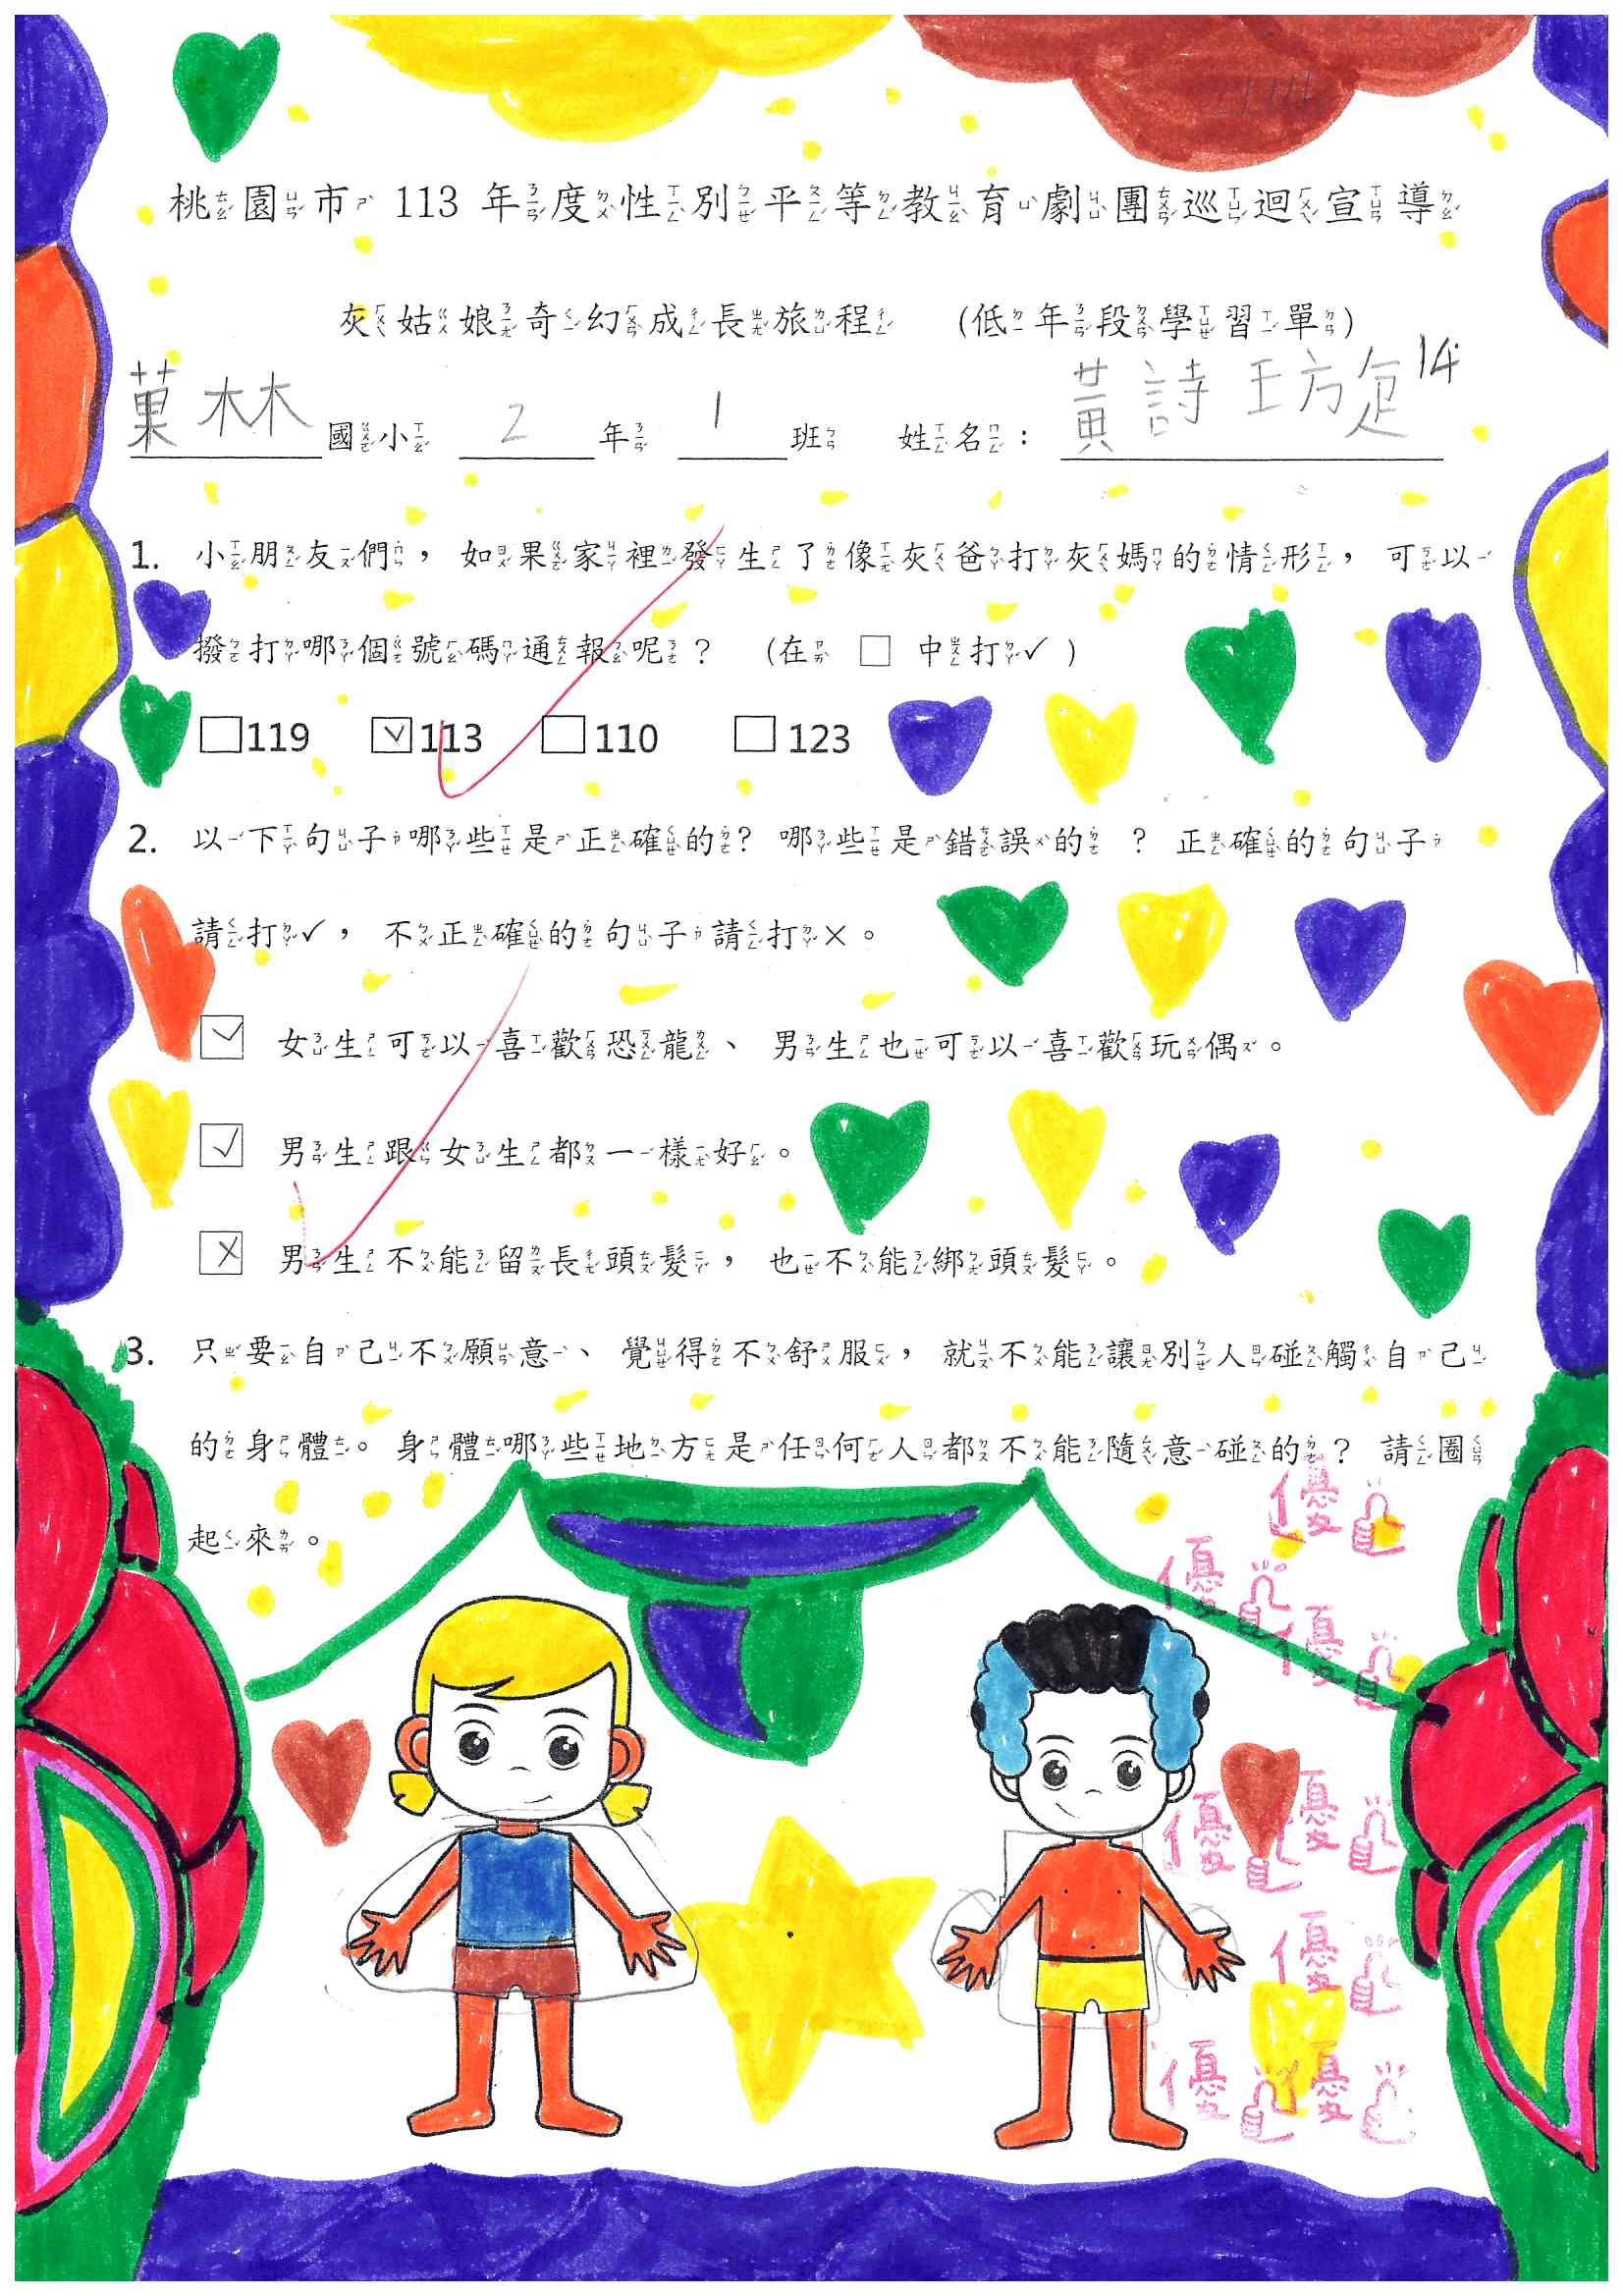 桃園市 113 年度性別平等教育劇團巡迴宣導
灰姑娘奇幻成長旅程 (低年段學習單)
菓林國小 2 年 1 班 姓名：黃詩琁 14
1. 小朋友們，如果家裡發生了像灰爸打灰媽的情形，可以
撥打哪個號碼通報呢？ (在 □ 中打✓)
□119 ☑113 □110 □123
2. 以下句子哪些是正確的？哪些是錯誤的？正確的句子
請打✓，不正確的句子請打×。
☑ 女生可以喜歡恐龍、男生也可以喜歡玩偶。
☑ 男生跟女生都一樣好。
☒ 男生不能留長頭髮，也不能綁頭髮。
3. 只要自己不願意、覺得不舒服，就不能讓別人碰觸自己
的身體。身體哪些地方是任何人都不能隨意碰的？請圈
起來。
優
優
優
優
優
優
優
優